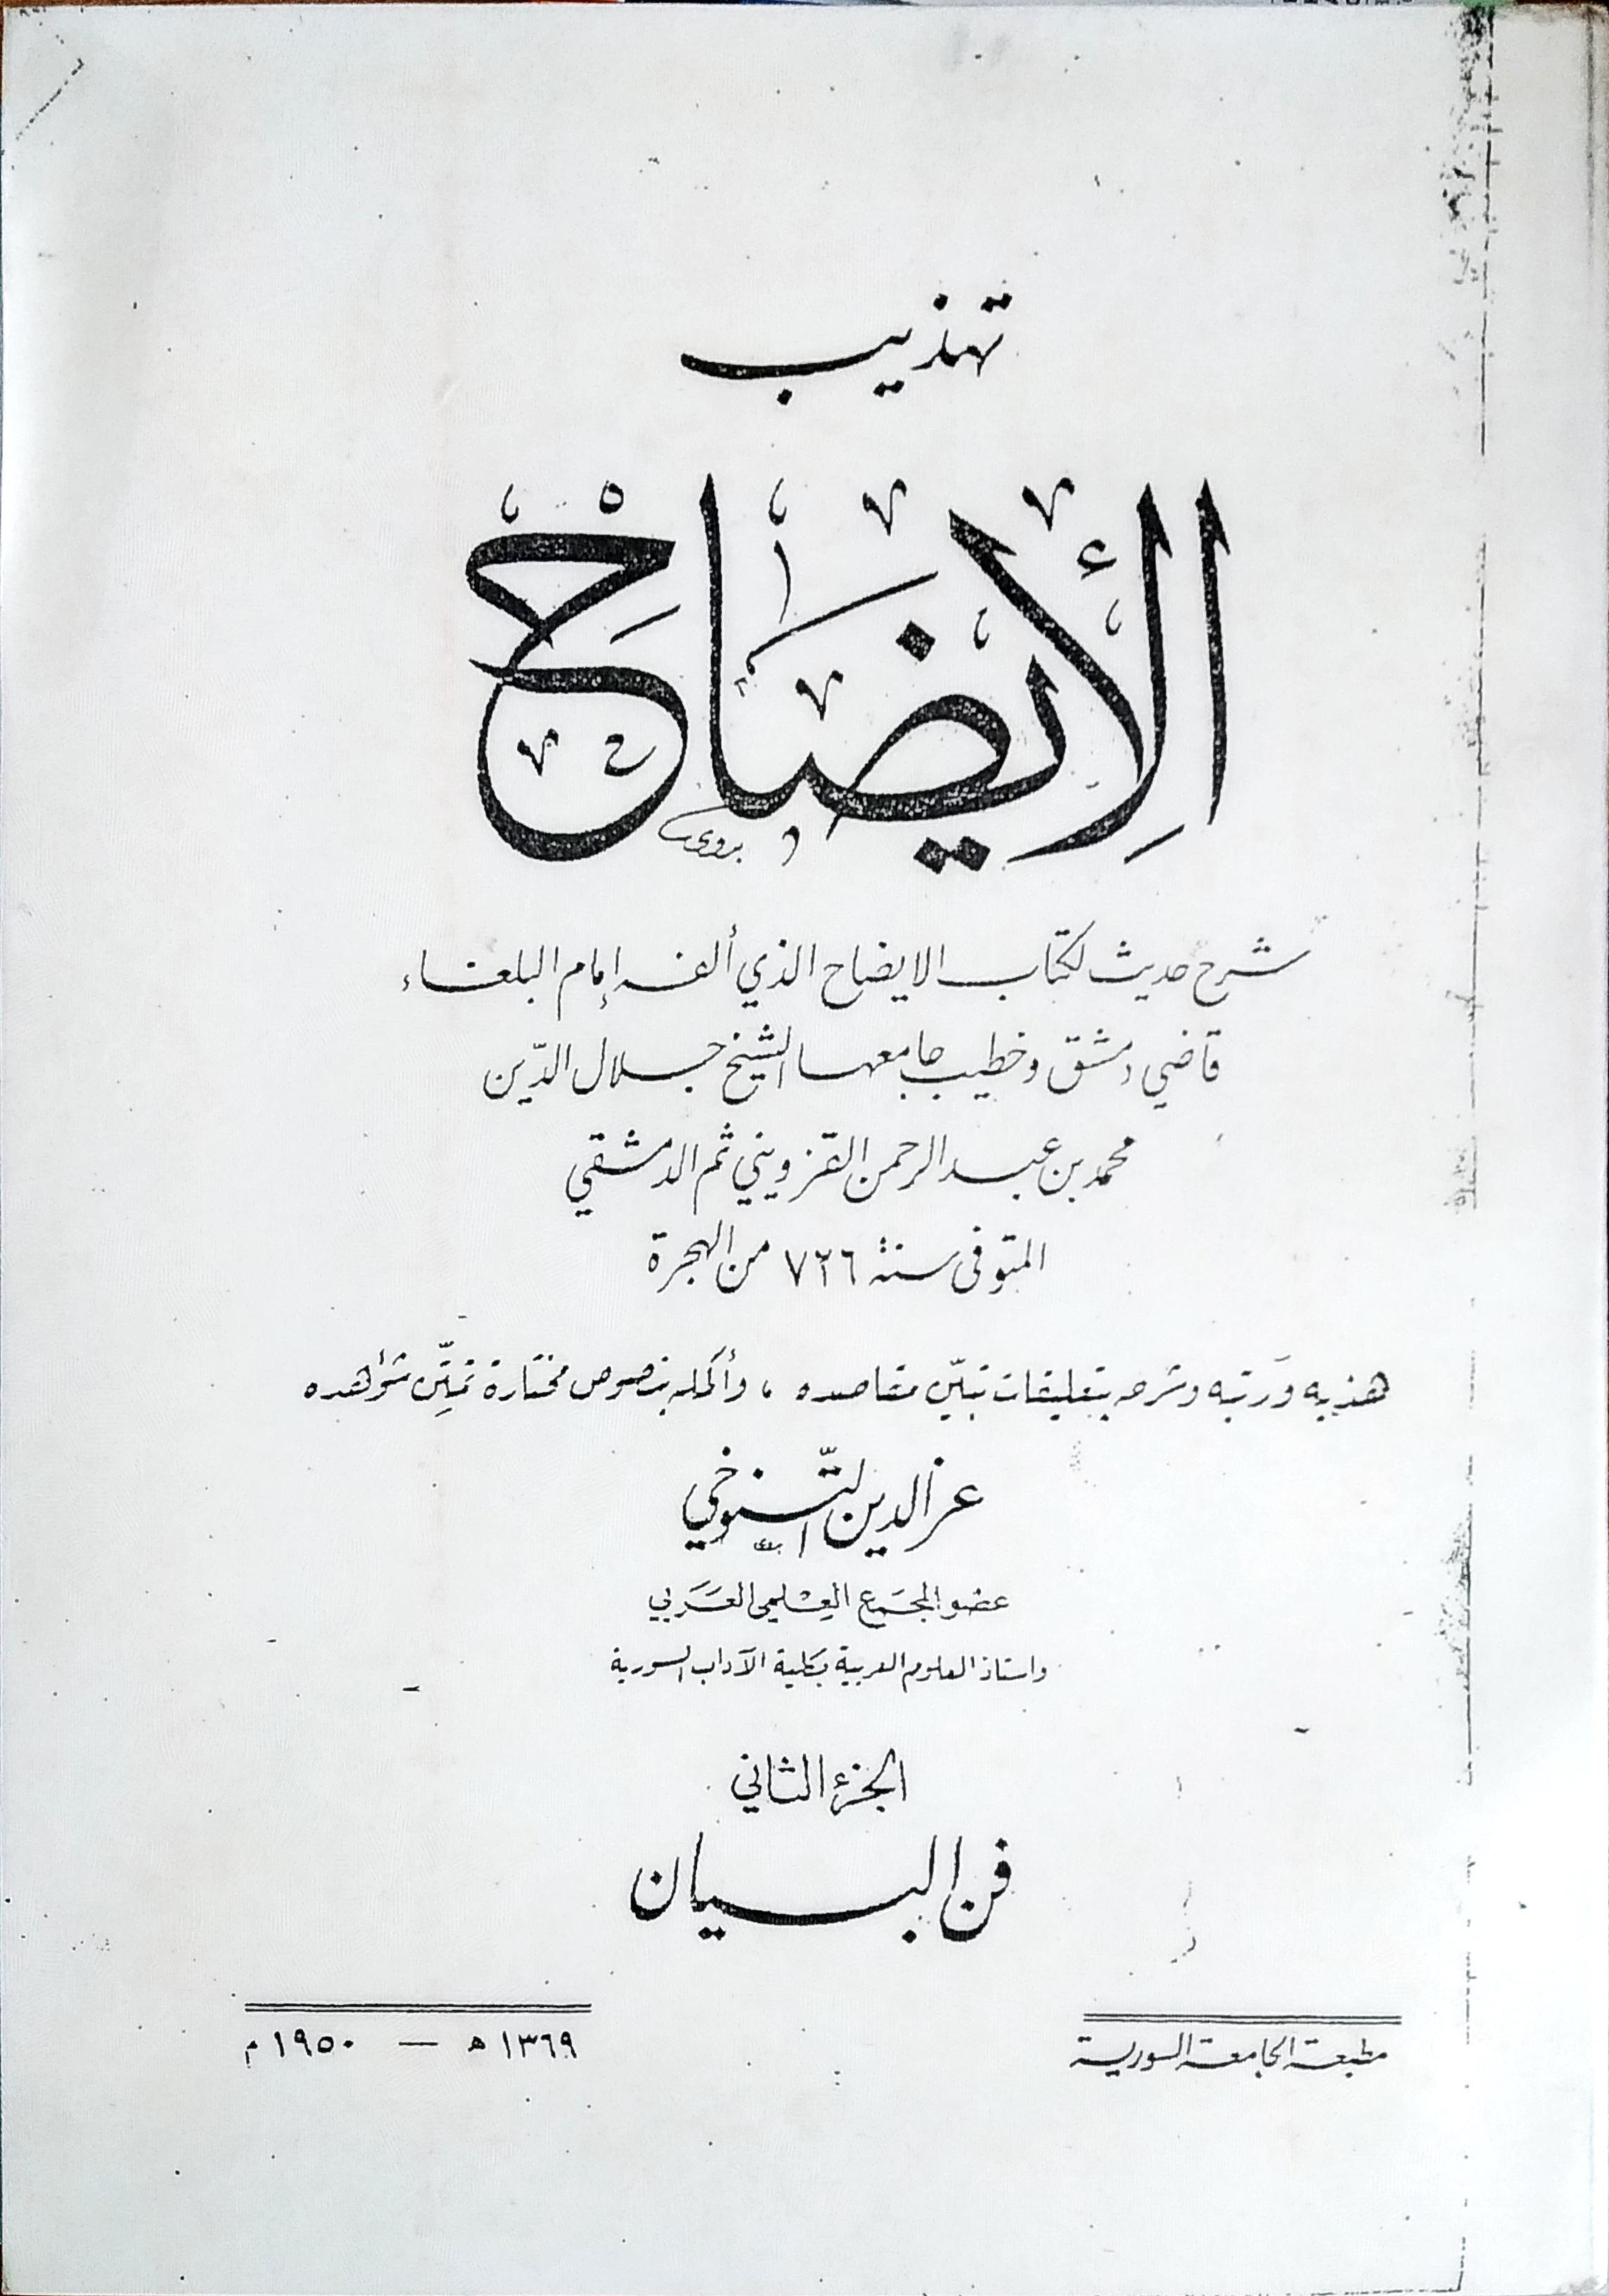 تهذيب
الإيضاح
بدوي
شرح حديث لكتاب الايضاح الذي ألفه إمام البلغاء
قاضي دمشق وخطيب جامعها الشيخ جلال الدّين
محمد بن عبد الرحمن القزويني ثم الدمشقي
المتوفى سنة ٧٢٦ من الهجرة
هذبه وَرتبه وشرحه بتعليقات تبيّن مقاصده ، وأكمله بنصوص مختارة تمتِّن شواهده
عز الدين التّنوخي
عضو المجمَع العِلمي العَرَبي
واستاذ العلوم العربية بكلية الآداب السورية
الجزء الثاني
فن البيان
مطبعة الجامعة السورية
١٣٦٩ ھ — ١٩٥٠ م